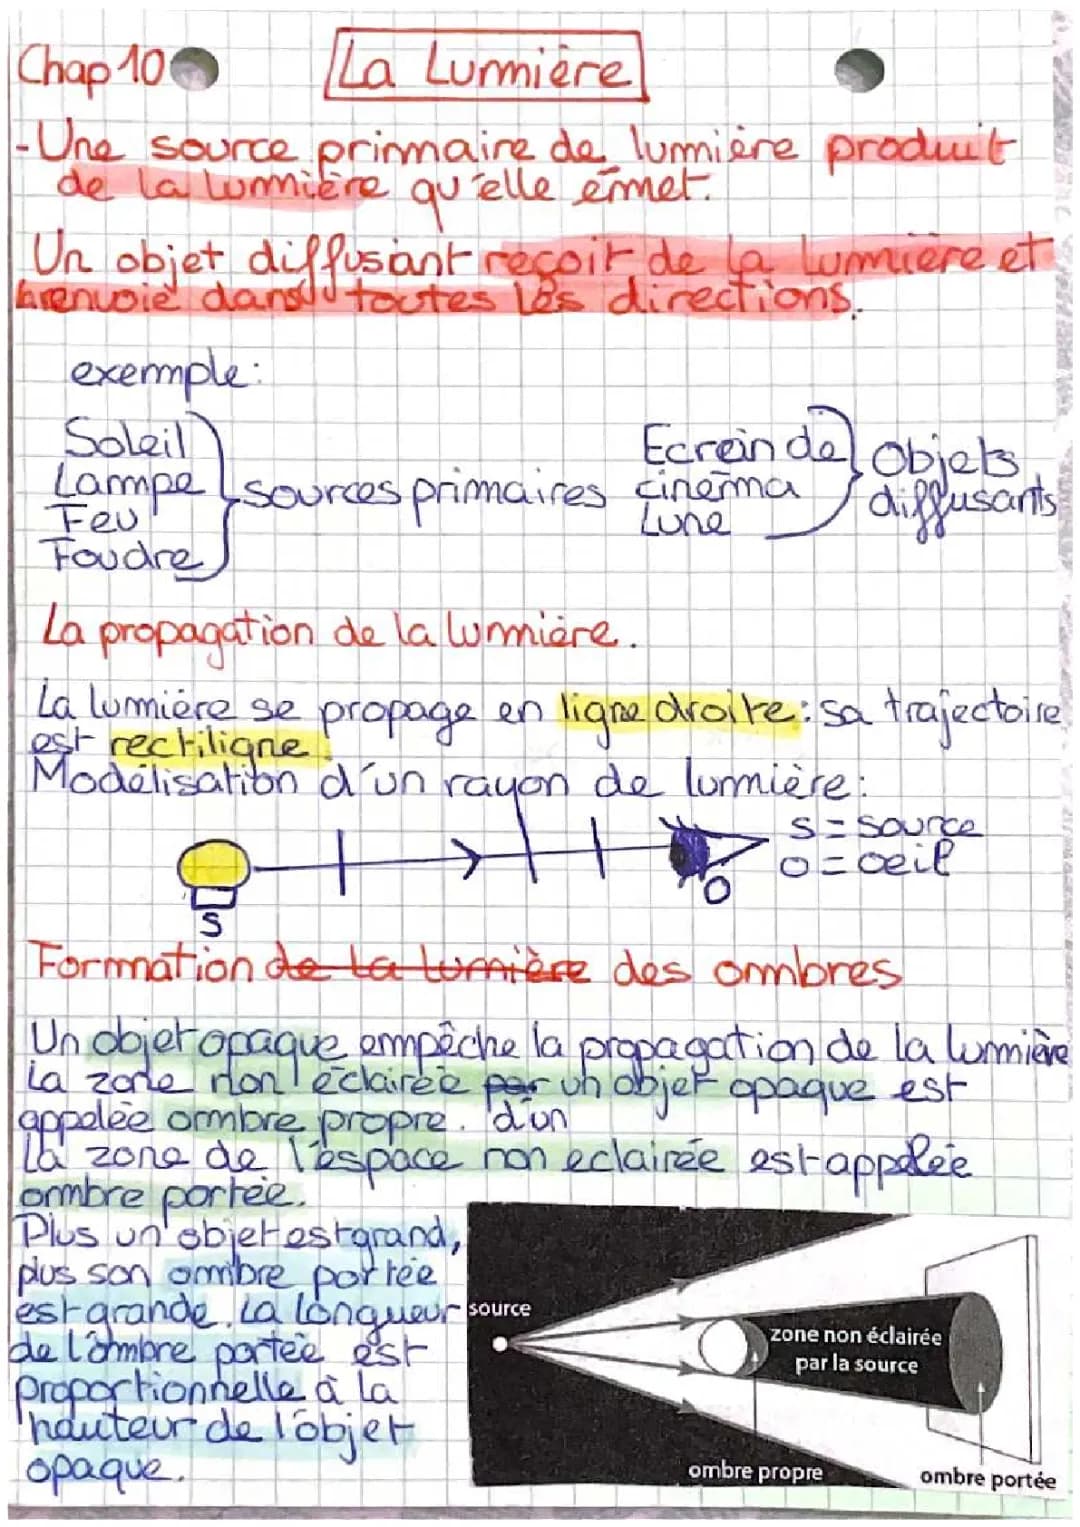 Chap 10
La Lumière
- Une source primaire de lumière produit
de la lumière qu'elle émet.
Un objet diffusant reçoit de la lumière et
la renvoie dans toutes les directions.
exemple:
Soleil
Lampe
Feu
Foudre
sources primaires
Ecrain de
cinéma
Lune
Objets
diffusants
La propagation de la lumière.
La lumière se propage en ligne droite: sa trajectoire
est rectiligne.
Modélisation d'un rayon de lumière:
S = source
O = oeil
S
O
Formation de la lumière des ombres
Un objet opaque empêche la propagation de la lumière
La zone non éclairée par un objet opaque est
appelée ombre propre. d'un
La zone de l'espace non eclairée est appelée
ombre portée.
Plus un objet est grand,
plus son ombre portée
est grande. La longueur
de l'ombre portée est
proportionnelle à la
hauteur de l'objet
opaque.
source
zone non éclairée
par la source
ombre propre
ombre portée